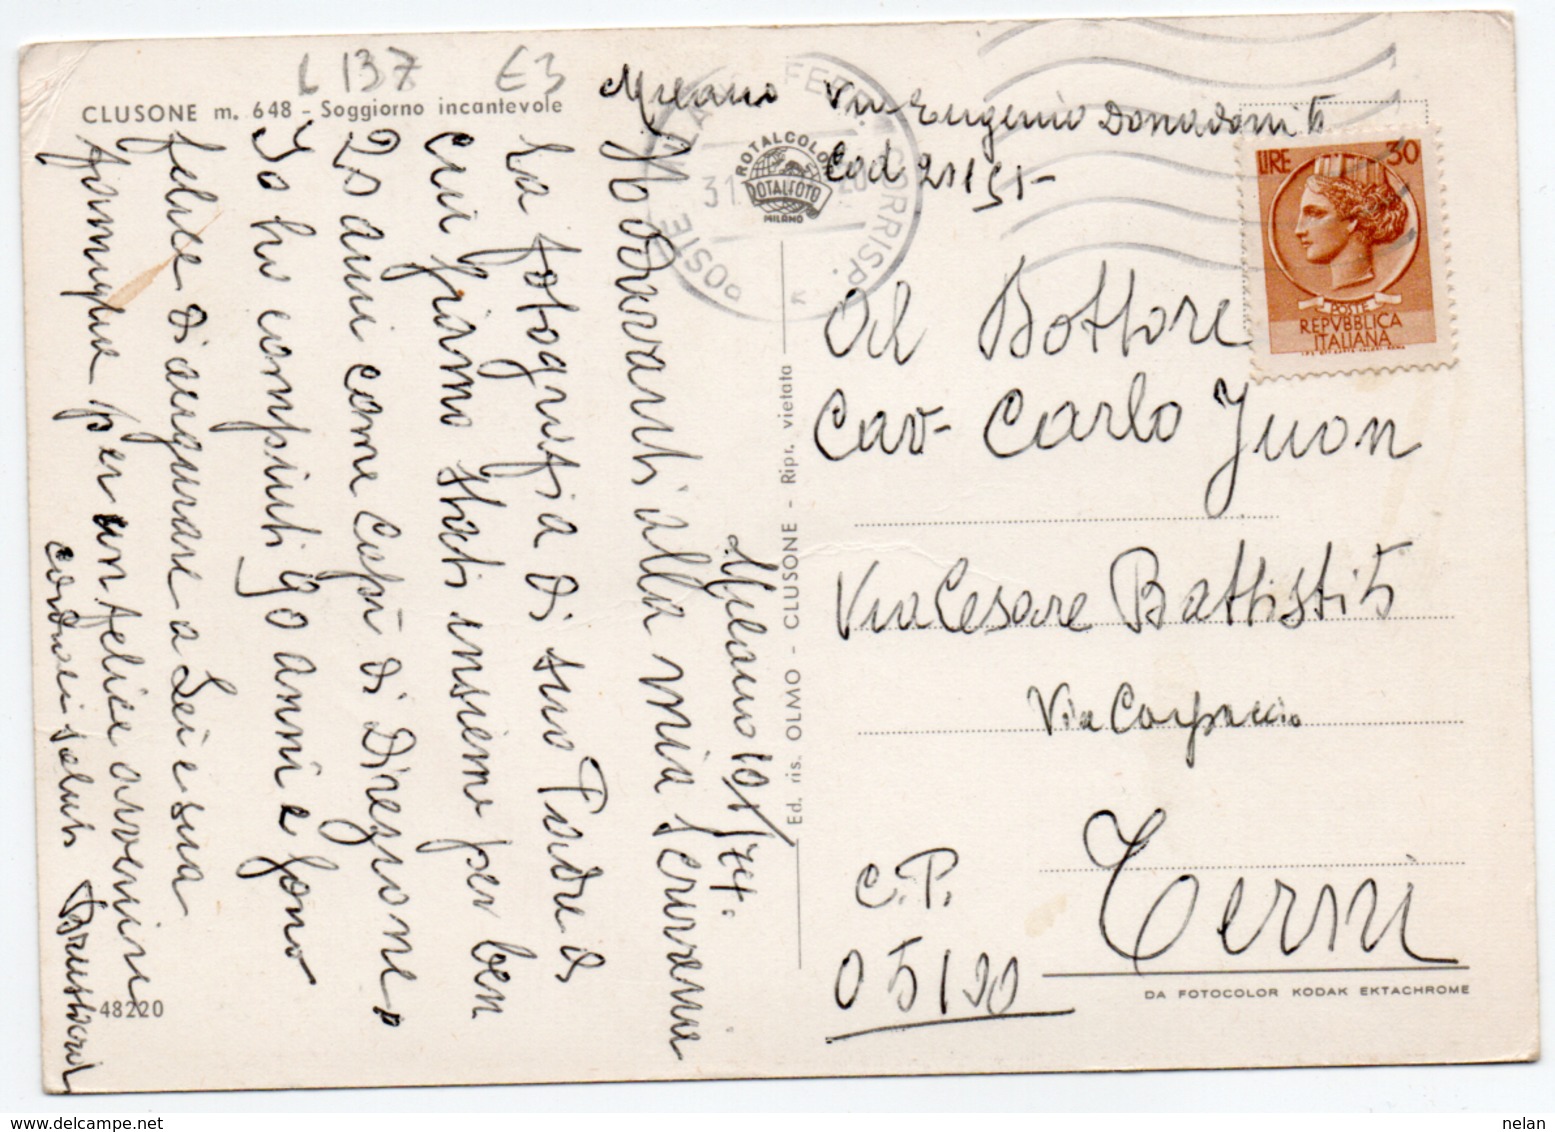 L 137 E3
CLUSONE m. 648 - Soggiorno incantevole
Milano Via Eugenio Donadoni 6
Cod 20151-
POSTE MILANO FERR. CORRISP.
31
20
ROTALCOLOR
ROTALFOTO
MILANO
LIRE 30
POSTE
REPVBBLICA
ITALIANA
Milano 10/1/74.
alla mia
La fotografia di suo Padre
cui fiamo stati insieme per ben
20 anni come Capi di Direzione,
Io ho compiuti 90 anni e sono
felice di augurare a Lei e sua
famiglia per un felice avvenire
cordiali saluti
48220
Ed. ris. OLMO - CLUSONE - Ripr. vietata
Al Dottore
Cav- Carlo Juon
Via Cesare Battisti 6
Via Carpaccio
Terni
C.P.
05100
DA FOTOCOLOR KODAK EKTACHROME
nelan